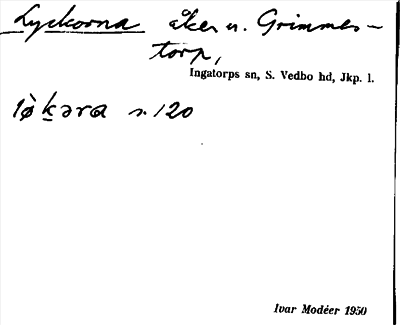 Lyckorna åker u. Grimmes-
torp,
Ingatorps sn, S. Vedbo hd, Jkp. l.
lø̀ḵəra s. 120
Ivar Modéer 1950